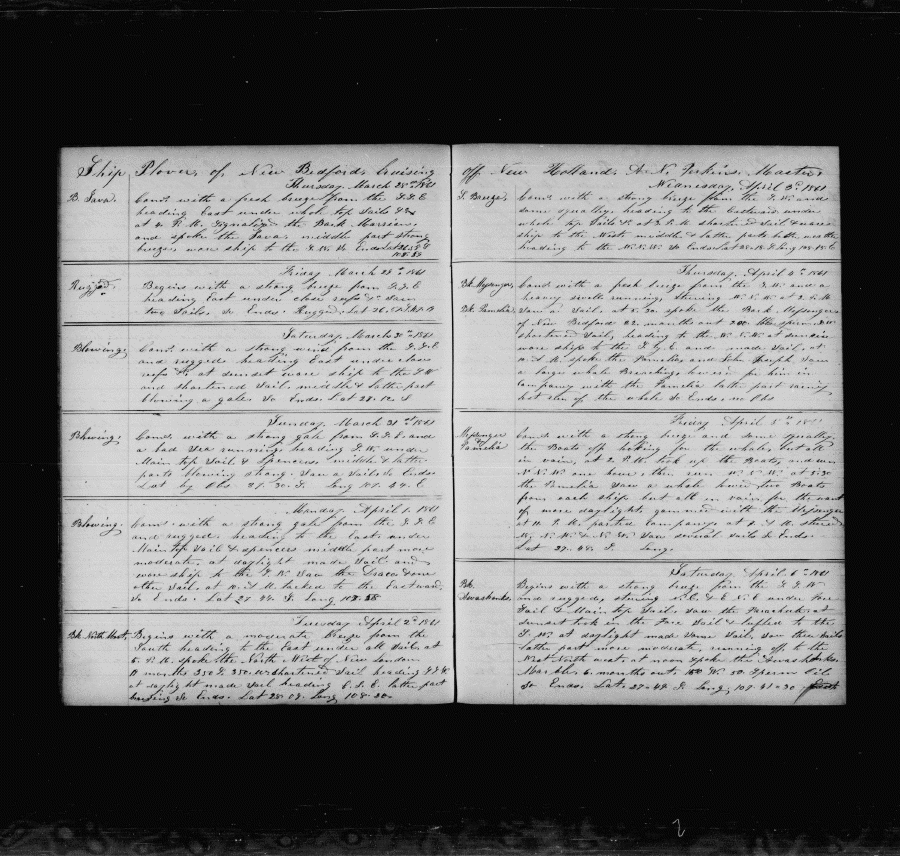 Ship Plover, of New Bedford, Cruising
Thursday, March 28th 1861
B. Java. Com's with a fresh breeze from the S.S.E
heading East under whole top Sails &c
at 4 P.M. Signalized the Bark
and spoke the Java, middle part strong
breeze, wore ship to the S.W. So Ends Lat
Friday March 29th 1861
Rugged. Begins with a strong breeze from S.S.E
heading East under close reefed
two Sails. So Ends. Rugged. Lat
Saturday, March 30th 1861
Blowing. Com's with a strong wind from the S.S.E
and rugged heading East under close
reefs at sunset wore ship to the S.W
and shortened Sail. middle & latter part
blowing a gale. So Ends. Lat 28.12 S
Sunday, March 31st 1861
Blowing. Com's with a strong gale from S.S.E. and
a bad Sea running heading S.W. under
Main top Sail & Spencers, middle & latter
parts blowing strong. Saw a Sail. So Ends
Lat by Obs 27.30. S. Long 107.24. E
Monday, April 1. 1861
Blowing. Com's with a strong gale from the S.S.E
and rugged heading to the East. under
Main top Sail & spencers middle part more
moderate, at daylight made Sail and
wore ship to the S.W. Saw the Draco & one
other Sail, at A.M. tacked to the Eastward
So Ends. Lat 27.44 S. Long 108.58
Tuesday April 2d 1861
Bk North West. Begins with a moderate Breeze from the
South heading to the East under all Sail, at
5. P.M. spoke the North West of New London
months 350 S. 350 shortened Sail heading S.S.W.
at daylight made Sail heading E.S.E. latter part
So Ends. Lat 28.09. Long 108.20
off New Holland. A. N. Perkins. Master
Wednesday, April 3d 1861
S. Breeze. Com's with a strong breeze from the S.W. and
some squally. heading to the Eastward under
whole top Sails at P.M. shortened Sail & wore
ship to the West. middle & latter parts
heading to the W.N.W. So Ends Lat Long
Thursday, April 4th 1861
Bk Messenger, Com's with a fresh breeze from the S.W. and a
heavy swell running, steering W.N.W. at 2 P.M
Bk Pamelia. Saw a Sail. at 5.30 spoke the Bark Messenger
of New Bedford 22. months out 200. bbls sperm
shortened Sail, heading to the W.N.W. at sunrise
wore ship to the S. by E. and made Sail, at
A.M. spoke the Pamelia, and John Joseph Saw
a large whale Breaching, lowered for him in
Company with the Pamelia latter part rainy
lost run of the whale So Ends. no Obs
Friday, April 5th 1861
Messenger Com's with a strong breeze and some squally,
Pamelia the Boats off looking for the whale, but all
in vain, at 2. P.M. took up the Boats, and run
N.N.W. one hour, then run W.N.W. at 5.30
the Pamelia Saw a whale lowered two Boats
from each ship but all in vain for the want
of more daylight, gammed with the Messenger
at P.M. parted Company at A.M. steered
W, N.W. & N.W. Saw several Sails So Ends.
Lat 27.48. S. Long.
Saturday, April 6th 1861
Bk Begins with a strong breeze from the S.S.W
Awashonks. and rugged, steering & E.N.E under Fore
Sail & Main top Sail. Saw the Parachute, at
sunset took in the Fore Sail & luffed to the
S.W. at daylight made Some Sail, Saw three Sails
latter part more moderate, running off to the
West North west, at noon spoke the Awashonks,
6. months out, 50 Sperm Oil
So Ends. Lat. 27=49 S. Long, 107=41=30